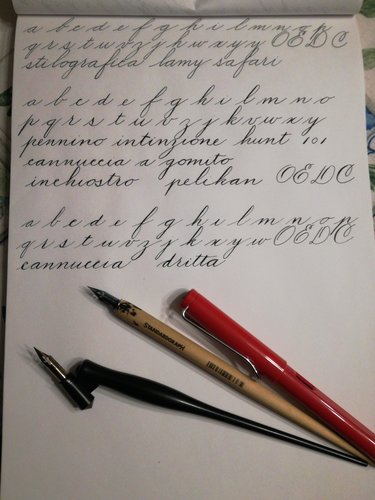 a b c d e f g h i l m n o p
q r s t u v z j k w x y y OEDC
stilografica lamy safari
a b c d e f g h i l m n o
p q r s t u v z j k v w x y
pennino intinzione hunt 101
cannuccia a gomito
inchiostro pelikan OEDC
a b c d e f g h i l m n o p
q r s t u v z j k x y w OEDC
cannuccia dritta
STANDARDGRAPH